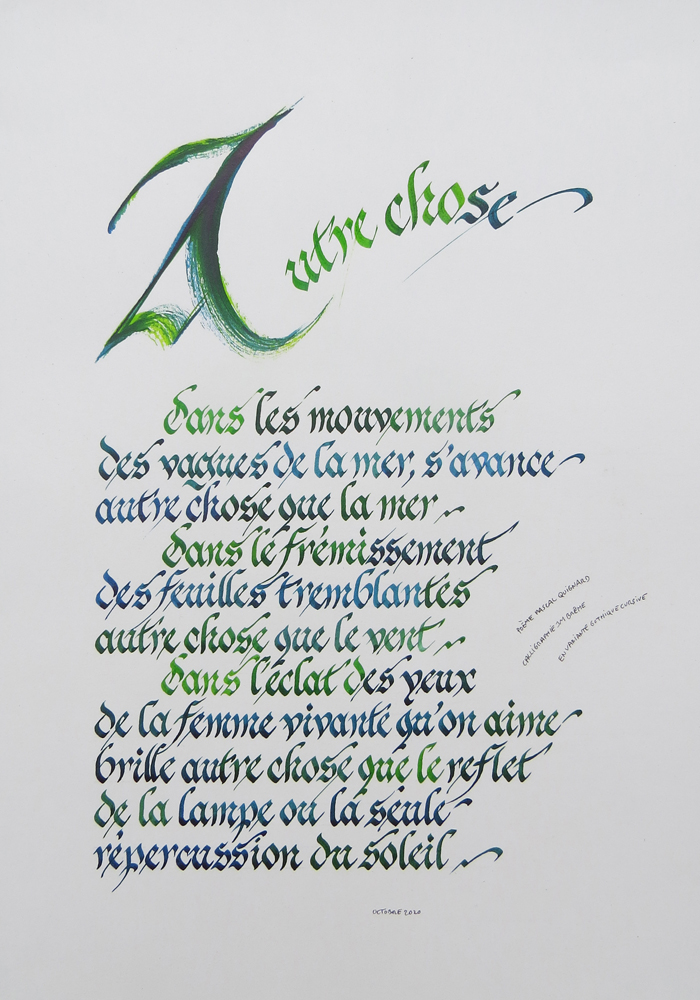 Autre chose
dans les mouvements
des vagues de la mer, s'avance
autre chose que la mer.
dans le frémissement
des feuilles tremblantes
autre chose que le vent.
dans l'éclat des yeux
de la femme vivante qu'on aime
brille autre chose que le reflet
de la lampe ou la seule
répercussion du soleil.
POÈME PASCAL QUIGNARD
EN VARIANTE GOTHIQUE CURSIVE
OCTOBRE 2020